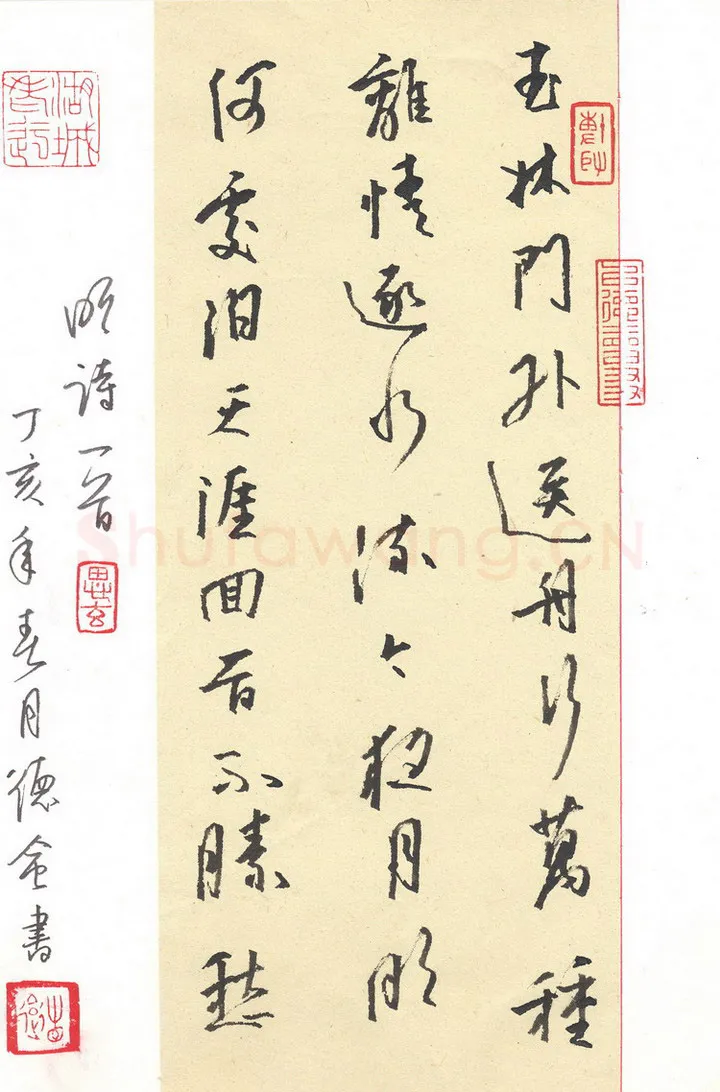 武林門外送舟行萬種
離情逐水流今夜月明
何處泊天涯回首不勝愁
明詩一首
思玄
丁亥年春月德金書
Shufawang.CN